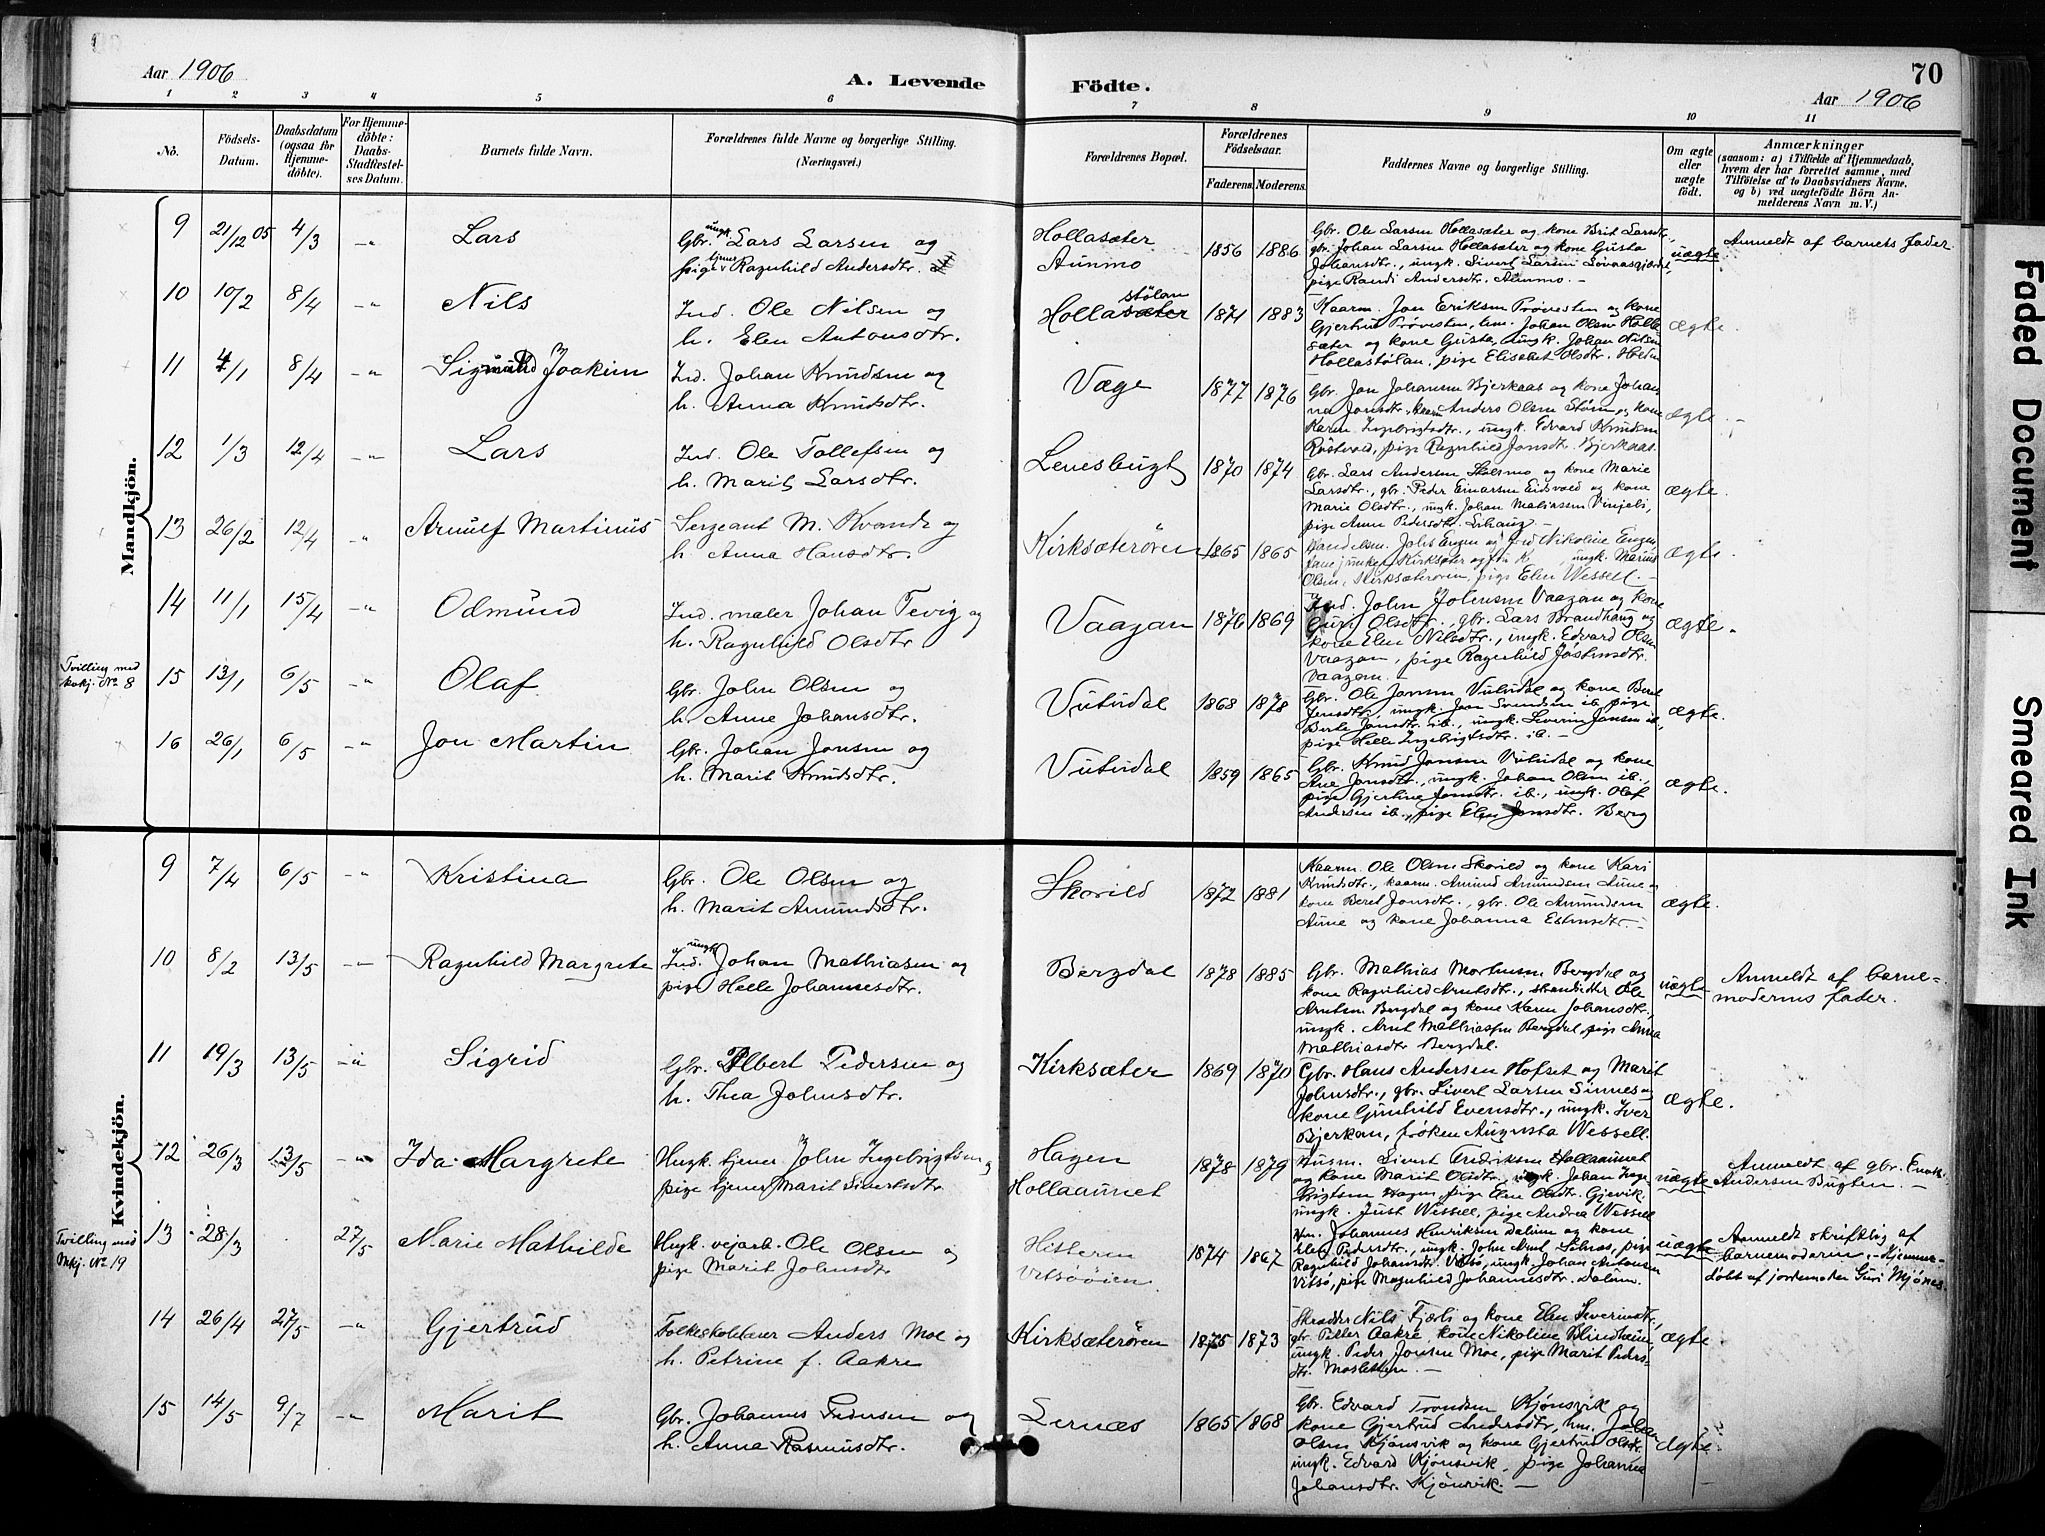 Aar 1906
A. Levende Födte.
70
Aar 1906
1 2 3 4 5 6 7 8 9 10 11
No.
Födsels-Datum.
Daabsdatum (ogsaa for Hjemme-döbte).
For Hjemme-döbte: Daabs-Stadfæstel-ses Datum.
Barnets fulde Navn.
Forældrenes fulde Navne og borgerlige Stilling. (Næringsvei.)
Forældrenes Bopæl.
Forældrenes Födselsaar.
Faderens. Moderens.
Faddernes Navne og borgerlige Stilling.
Om ægte eller uægte födt.
Anmærkninger
(saasom: a) i Tilfælde af Hjemmedaab, hvem der har forrettet samme, med Tilföielse af to Daabsvidners Navne, og b) ved uægtefödte Börn An-melderens Navn m. V.)
Mandkjön.
9 21/12 05 4/3 -"- Lars
Gbr. ungk. Lars Larsen og
pige tjener Ragnhild Andersdtr.
Hollasæter
Aunmo
1856 1886
Gbr. Ole Larsen Hollasæter og kone Brit Larsdtr.,
gbr. Johan Larsen Hollasæter og kone Gusta
Johansdtr., ungk. Sivert Larsen
pige Randi Andersdtr. Aunmo. -
uægte
Anmeldt af barnets fader
10 10/2 8/4 -"- Nils
Ind. Ole Nilsen og
h. Elen Antonsdtr.
Hollasæter stølan
1871 1883
Kaarm. Jon Eriksen Trøvesten og kone
Gjertrud Trøvesten, hm. Johan Olsen Holla-
sæter og kone Gusta, ungk. Johan Nilsen
Hollastølan, pige Elisabet Olsdtr.
ægte.
11 4/1 8/4 -"- Sigmund Joakim
Ind. Johan Knudsen og
h. Anna Knudsdtr.
Væge
1877 1876
Gbr. Jon Johansen Bjerkaas og kone Johan-
na Jonsdtr., Anders Olsen Støen og kone
Karen Ingebrigtsdtr., ungk. Edvard Knudsen
pige Ragnhild Jonsdtr. Bjerkaas.
ægte.
12 1/3 12/4 -"- Lars
Ind. Ole Tollefsen og
h. Marit Larsdtr.
Lenesbugt
1870 1874
Gbr. Lars Andersen Holsmo og kone Marie
Larsdtr., gbr. Peder Einarsen Eidsvold og kone
Marie Olsdtr., ungk. Johan Mathiasen Vinjeli,
pige Anne Pedersdtr.
ægte.
13 26/2 12/4 -"- Arnulf Martinus
Sergeant M. Kvande og
h. Anna Hansdtr.
Kirksæterøren
1865 1865
Handelsm. Johs Engen og fru Nikoline Engen,
Kirksæter og ungk. Marius
Olsen, Kirksæterøren, pige Elen Wessell. -
ægte.
14 11/1 15/4 -"- Odmund
Ind. maler Johan Tevig og
h. Ragnhild Olsdtr
Vaagan
1876 1869
Ind. John Johnsen Vaagan og kone
Guri Olsdtr., gbr. Lars Brandhaug og
kone Elen Nilsdtr., ungk. Edvard Olsen
Vaagan, pige Ragnhild Jostensdtr.
Vaagan. -
ægte.
Tvilling med kvkj. No. 8
15 13/1 6/5 -"- Olaf
Gbr. John Olsen og
h. Anne Johansdtr.
Vutudal
1868 1878
Gbr. Ole Jonsen Vutudal og kone Beret
Jensdtr., ungk. Jon Svendsen ib., pige
Berte Jonsdtr. ib., ungk. Severin Jansen ib.,
pige Helle Ingebrigtsdtr. ib. -
ægte.
16 26/1 6/5 -"- Jon Martin
Gbr. Johan Jonsen og
h. Marit Knudsdtr.
Vutudal
1859 1865
Gbr. Knud Jonsen Vutudal og kone
Ane Jonsdtr., ungk. Johan Olsen ib.,
pige Gjertine Jonsdtr. ib., ungk. Olaf
Andersen ib., pige Elen Jonsdtr. Berig
ægte.
Kvindekjön.
9 7/4 6/5 -"- Kristina
Gbr. Ole Olsen og
h. Marit Amundsdtr.
Skorild
1872 1881
Kaarm. Ole Olsen Skorild og kone Kari
Knudsdtr., kaarm. Amund Amundsen Aune og
kone Beret Jonsdtr., gbr. Ole Amundsen
Aune og kone Johanna Estensdtr. -
ægte.
10 8/2 13/5 -"- Ragnhild Margrete
Ind. ungk. Johan Mathiasen og
pige Helle Johannesdtr.
Bergdal
1878 1885
Gbr. Mathias Mortensen Bergdal og
kone Ragnhild Arntsdtr., strandsidder Ole
Arntsen Bergdal og kone Karen Johansdtr.,
ungk. Arnt Mathiassen Bergdal, pige Anna
Mathiasdtr Bergdal.
uægte
Anmeldt af barne-
moderens fader.
11 19/3 13/5 -"- Sigrid
Gbr. Albert Pedersen og
h. Thea Johnsdtr.
Kirksæter
1869 1870
Gbr. Hans Andersen Hofset og Marit
Johnsdtr., gbr. Sivert Larsen Sinnes og
kone Gunhild Evensdtr., ungk. Iver
Bjerkan, frøken Augusta Wessell.
ægte.
12 26/3 13/5 -"- Ida Margrete
Ungk. tjener John Ingebrigtsen og
pige tjener Marit Sivertsdtr
Hagen
Hollaaunet
1878 1879
Husm. Sivert Fredriksen Hollaaunet
og kone Marit Olsdtr., ungk. Johan Inge-
brigtsen Hagen, pige Elen Olsdtr. Gjevik,
ungk. Just Wessell, pige Andrea Wessell
uægte
Anmeldt af gbr. Enok
Andersen Bugten. -
Tvilling med Mkj. No. 19
13 28/3 27/5 Marie Mathilde
Ungk. vejarb. Ole Olsen og
pige Marit Johnsdtr
Hitteren
Vitsøöien
1874 1867
Hm. Johannes Henriksen Dalum og kone
Elen Pedersdtr., ungk. John Arnt Lihnes, pige
Ragnhild Johansdtr. Vitsø, ungk. Johan Antonsen
Vitsø, pige Magnhild Johannesdtr. Dalum.
uægte
Anmeldt skriftlig af
barnemoderen. Hjemme-
døbt af jordemoder Guri Mjønes.
14 26/4 27/5 -"- Gjertrud
Folkeskolelærer Anders Moe og
h. Petrine f. Aakre
Kirksæterøren
1875 1873
Skrædder Nils Fjæli og kone Elen Severinsdtr,
gbr. Petter Aakre, kone Nikoline Blindheim,
ungk. Peder Jonsen Moe, pige Marit Peders-
dtr. Mosletten. -
ægte
15 14/5 9/7 -"- Marit
Gbr. Johannes Pedersen og
h. Anna Rasmusdtr.
Lernæs
1865 1868
Gbr. Edvard Trondsen Kjønsvik og
kone Gjertrud Andersdtr, hm. Johan
Olsen Kjønsvik og kone Gjertrud Olsdtr.
ungk. Edvard Kjønsvik, pige Johanna
Johansdtr. Kjønsvik. -
ægte.
Faded Document
Smeared Ink